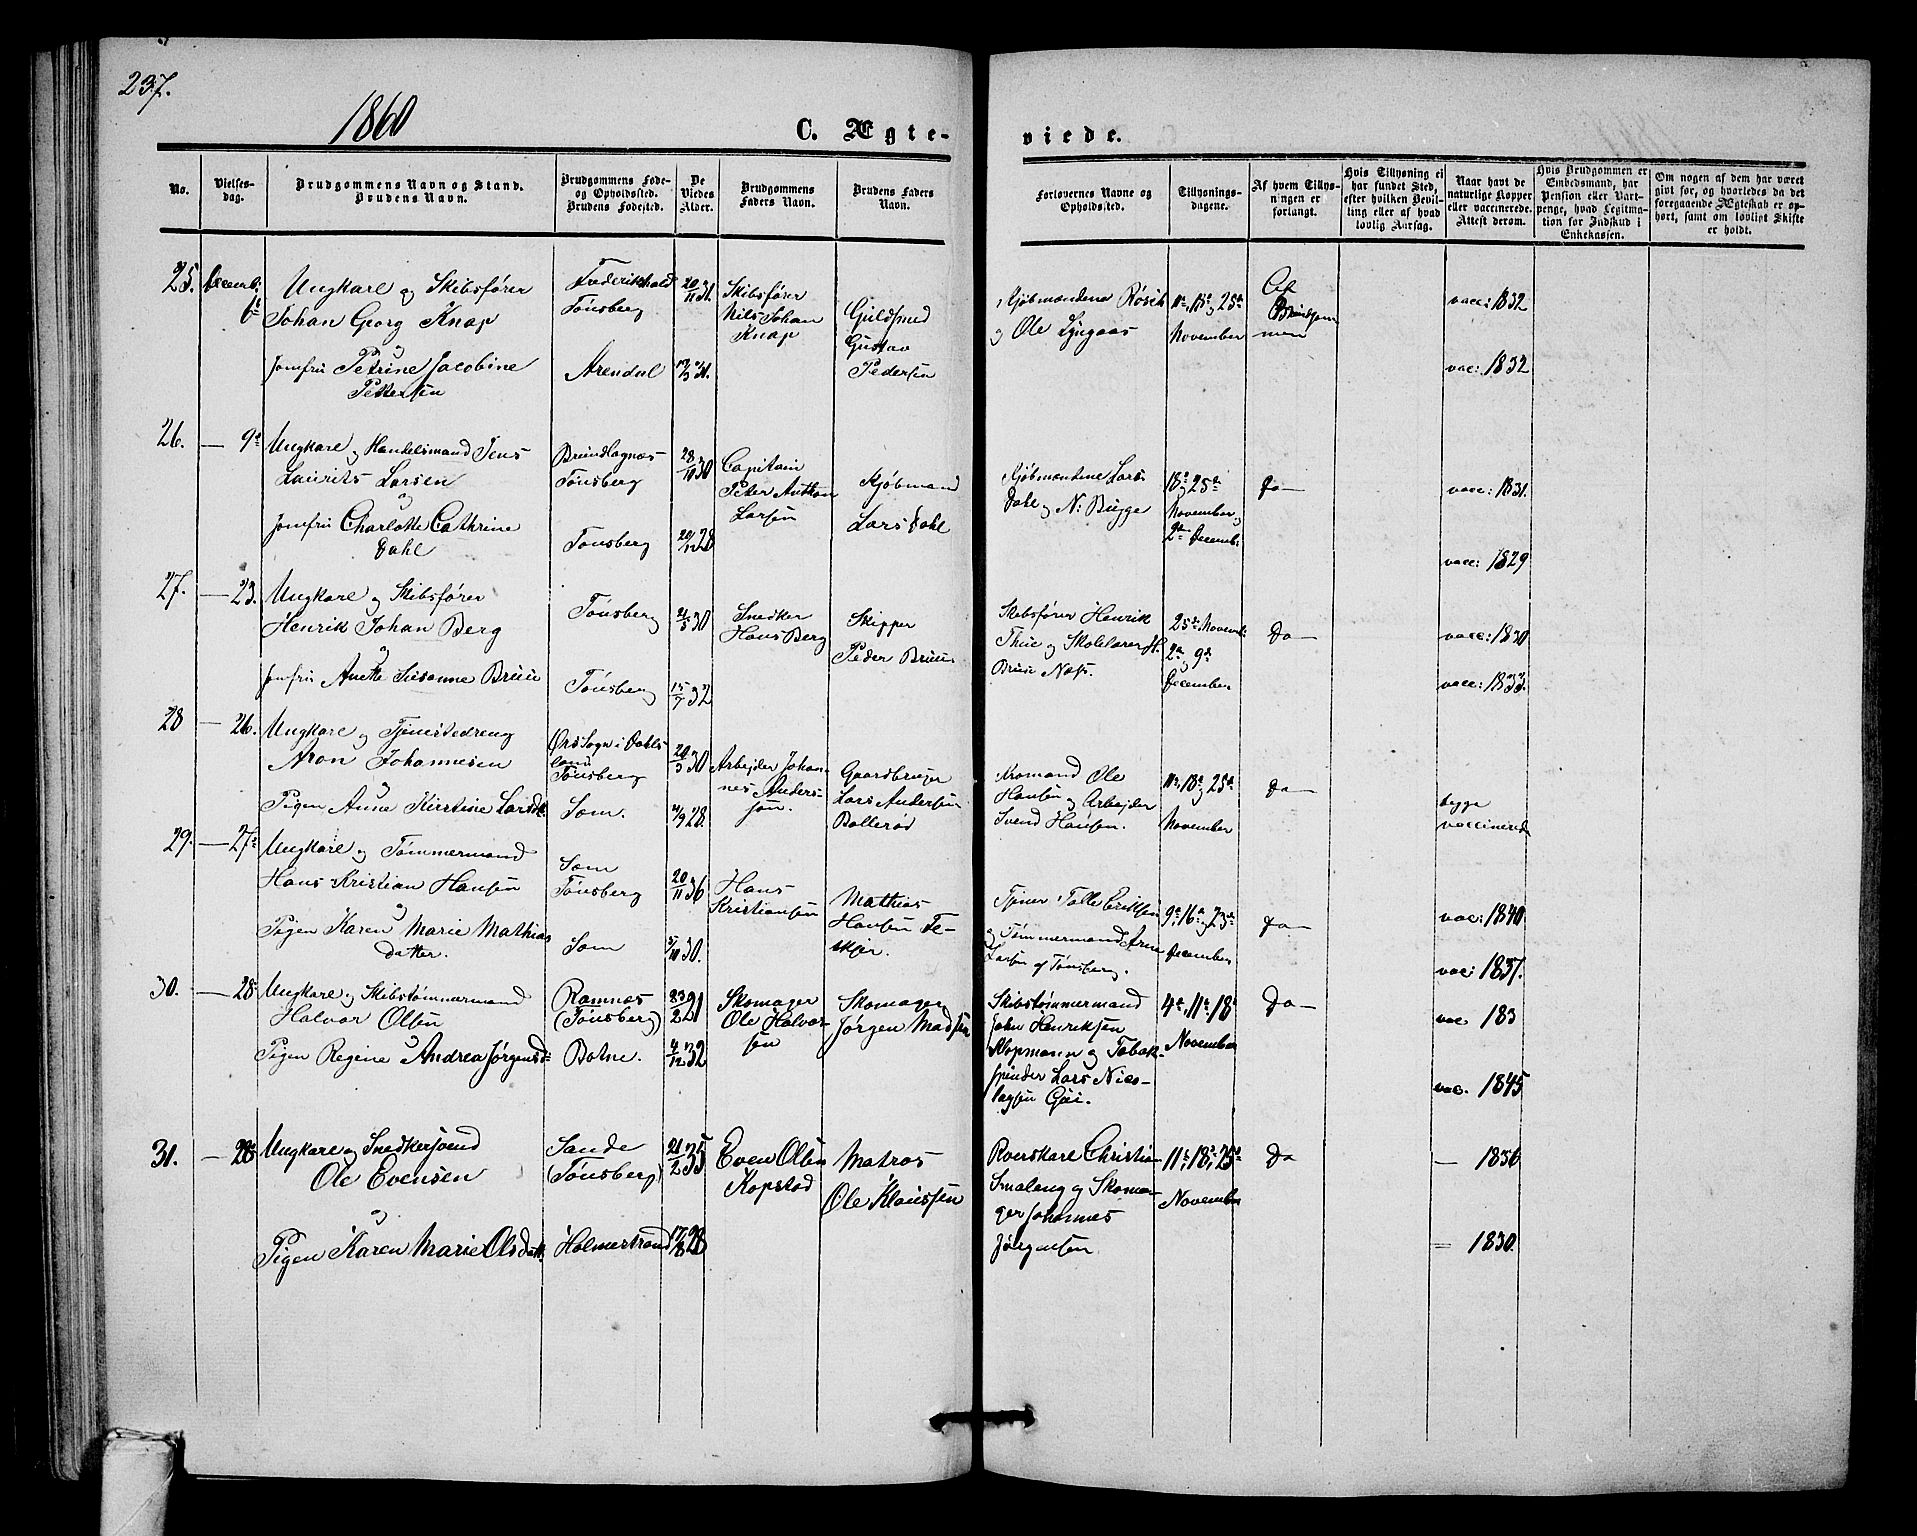 237.
1860
C. Ægte-
viede.
No.
Vielses-
dag.
Brudgommens Navn og Stand.
Brudens Navn.
Brudgommens Føde-
og Opholdssted.
Brudens Fødested.
De
Viedes
Alder.
Brudgommens
Faders Navn.
Brudens Faders
Navn.
Forlovernes Navne og
Opholdssted.
Tillysnings-
dagene.
Af hvem Tillys-
ningen er
forlangt.
Hvis Tillysning ei
har fundet Sted,
efter hvilken Bevil-
ling eller af hvad
lovlig Aarsag.
Naar havt de
naturlige Kopper
eller vaccinerede.
Attest derom.
Hvis Brudgommen er
Embedsmand, har
Pension eller Vart-
penge, hvad Legitima-
tion for Indskud i
Enkekassen.
Om nogen af dem har været
givt for, og hvorledes da det
foregaaende Ægteskab er op-
hørt, samt om lovligt Skifte
er holdt.
25.
Decemb.
6te
Ungkarl og Skibsfører
Johan Georg Knap
og
Jomfru Petrine Jacobine
Pettersen
Frederikshald
Tønsberg
Arendal
20/11 31
17/3 31.
Skibsfører
Nils Johan
Knap
Guldsmed
Gustav
Pedersen
Kjøbmændene Røsik
og Ole Lyngaas
11te, 18de og 25de
November
Af
Brudgom
men
vacc: 1832
vac: 1832
26.
— 9de
Ungkarl og Handelsmand Jens
Laurits Larsen
og
Jomfru Charlotte Cathrine
Dahl
Brunlagnæs
Tønsberg
Tønsberg
28/10 30
20/12 28
Capitain
Peter Anthon
Larsen
Kjøbmand
Lars Dahl
Kjøbmændene Lars
Dahl og N: Bugge
18de og 25de
November og
2den Decemb:
Do —
vacc: 1831.
vacc: 1829
27.
— 23.
Ungkarl og Skibsfører
Henrik Johan Berg
og
Jomfru Anette Susanne Bruu
Tønsberg
Tønsberg
21/5 30
15/7 32
Snedker
Hans Berg
Skipper
Peder Bruu
Skibsfører Henrik
Thue og Skolelærer H.
Bruu Næs.
25de Novemb:
2den og 9de
December
Do —
vacc: 1830
vacc: 1833.
28
— 26.
Ungkarl og Tjenestedreng
Aron Johannesen
og
Pigen Anne Kirstine Larsdt.
Ørs Sogn i Dahls
land
Tønsberg
Sem.
20/3 30
4/9 28.
Arbejder Johan-
nes Anders-
sen.
Gaardbruger
Lars Andersen
Bollerød
Kromand Ole
Hansen og Arbejder
Svend Hansen.
11te, 18de og 25de
November
Do —
begge
vaccinerede
29.
— 27de
Ungkarl og Tømmermand
Hans Kristian Hansen
og
Pigen Karen Marie Mathias
datter.
Sem
Tønsberg
Sem
20/11 36
5/10 30.
Hans
Kristiansen
Mathias
Hansen Te-
skjer.
Tjener Tolle Eriksen
og Tømmermand Arne
Larsen af Tønsberg.
9de, 16de og 23de
December
Do —
vac: 1840.
vac: 1837.
30.
— 28de
Ungkarl og Skibstømmermand
Halvor Olsen
og
Pigen Regine Andrea Jørgensd:
Ramnæs
(Tønsberg)
Botne.
23/2 21
4/12 32
Skomager
Ole Halvor-
sen
Skomager
Jørgen Madsen
Skibstømmermand
John Henriksen
Klopmann og Tobak-
spinder Lars Nico-
laysen Gui.
4de, 11te, 18de
November
Do —
vac 183
vac. 1845
31.
— 28de
Ungkarl og Snedkersvend
Ole Evensen
og
Pigen Karen Marie Olsdatt.
Sande
(Tønsberg)
Holmestrand
21/2 35
17/8 28
Even Olsen
Kopstad
Matros
Ole Klaussen
Roerskarl Christian
Smalang og Skoma-
ger Johannes
Jørgensen
11te, 18de, 25de
November
Do
— 1836
= 1830.